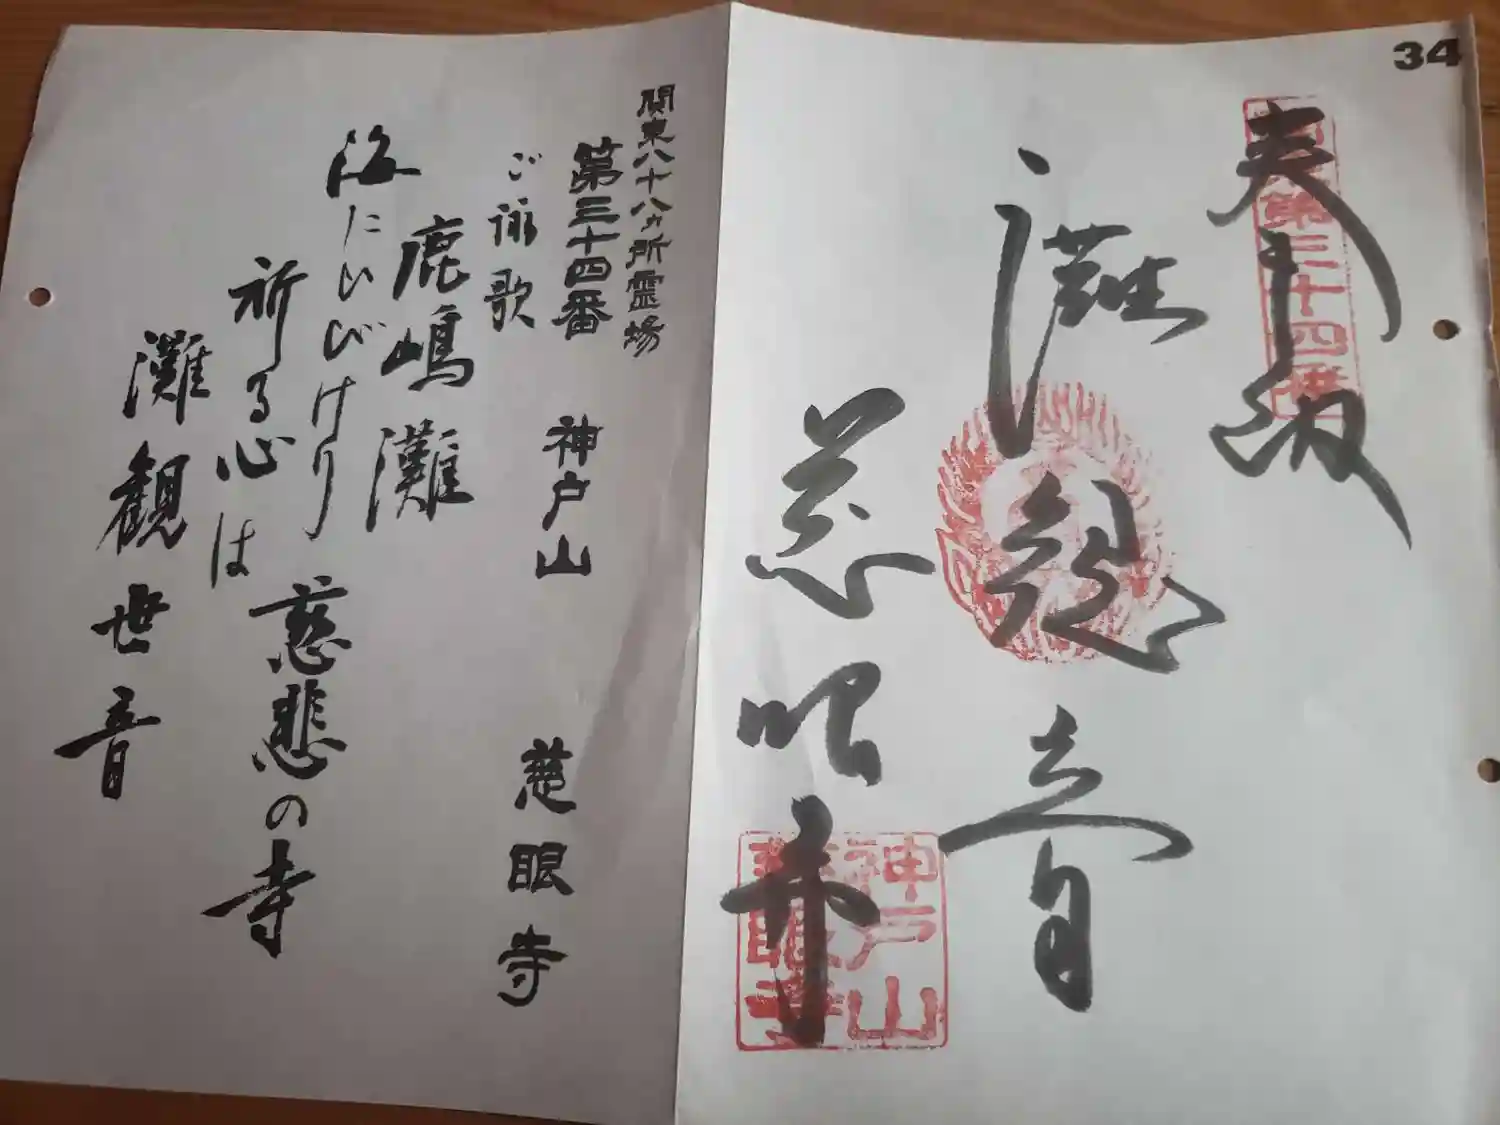 34
奉納
関東第三十四番
灘観音
慈眼寺
神戸山
慈眼寺
関東八十八ヵ所霊場
第三十四番 神戸山 慈眼寺
ご詠歌
鹿嶋灘
海にいびけり 慈悲の寺
祈る心は
灘観世音